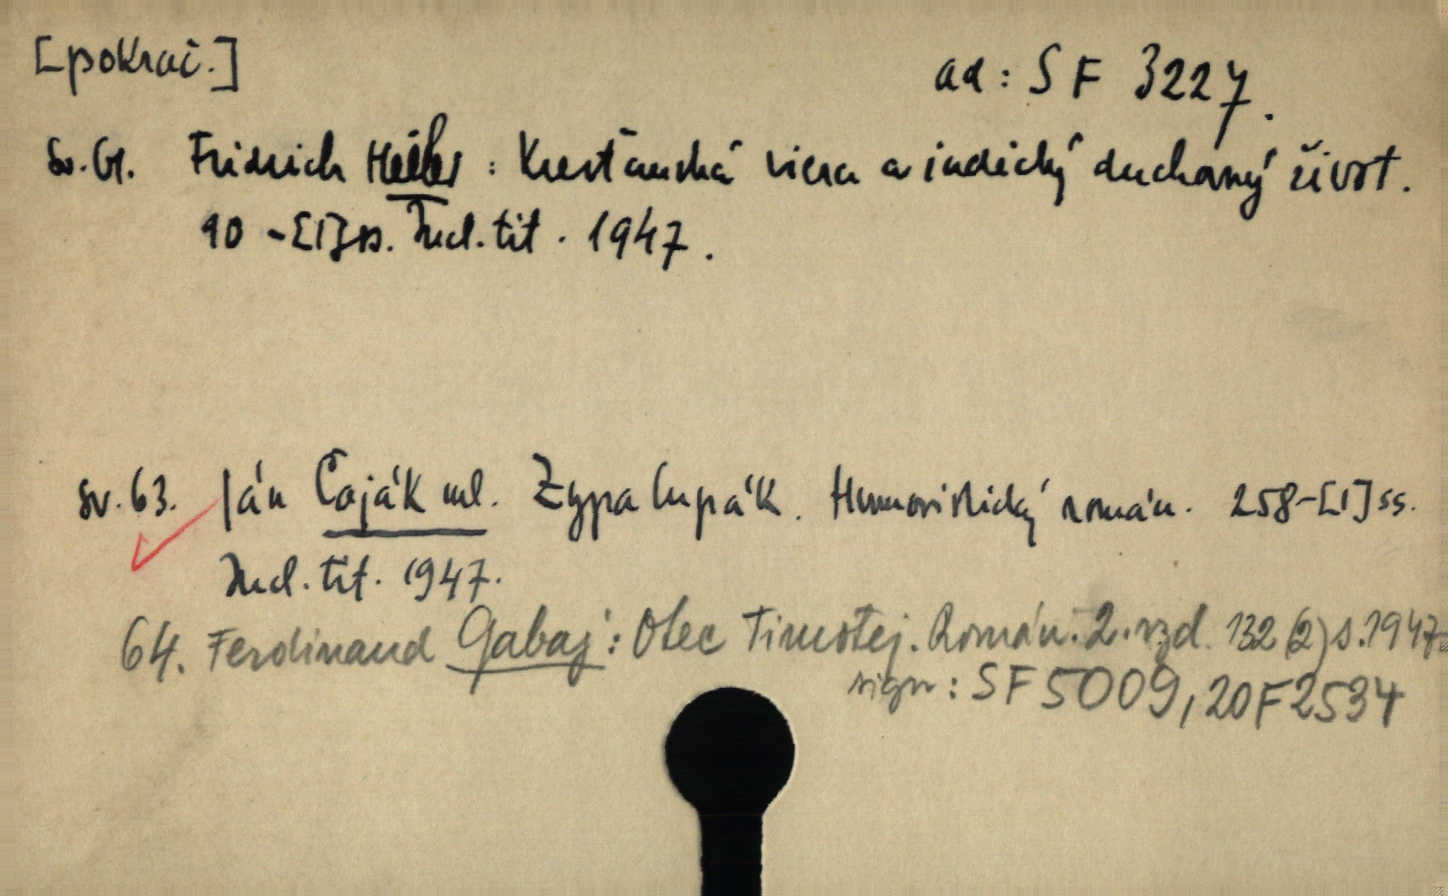 [pokrač.]
ad: SF 3227.
sv. 61. Fridrich Heiler: Kresťanská viera a indický duchovný život.
90-[1] s. Incl. tit. 1947.
sv. 63. Ján Čaják ml. Zypa Cupák. Humoristický román. 258-[1] ss.
Incl. tit. 1947.
64. Ferdinand Gabaj: Otec Timotej. Román. 2. vyd. 132 (2) s. 1947.
sign: SF 5009, 20F2534